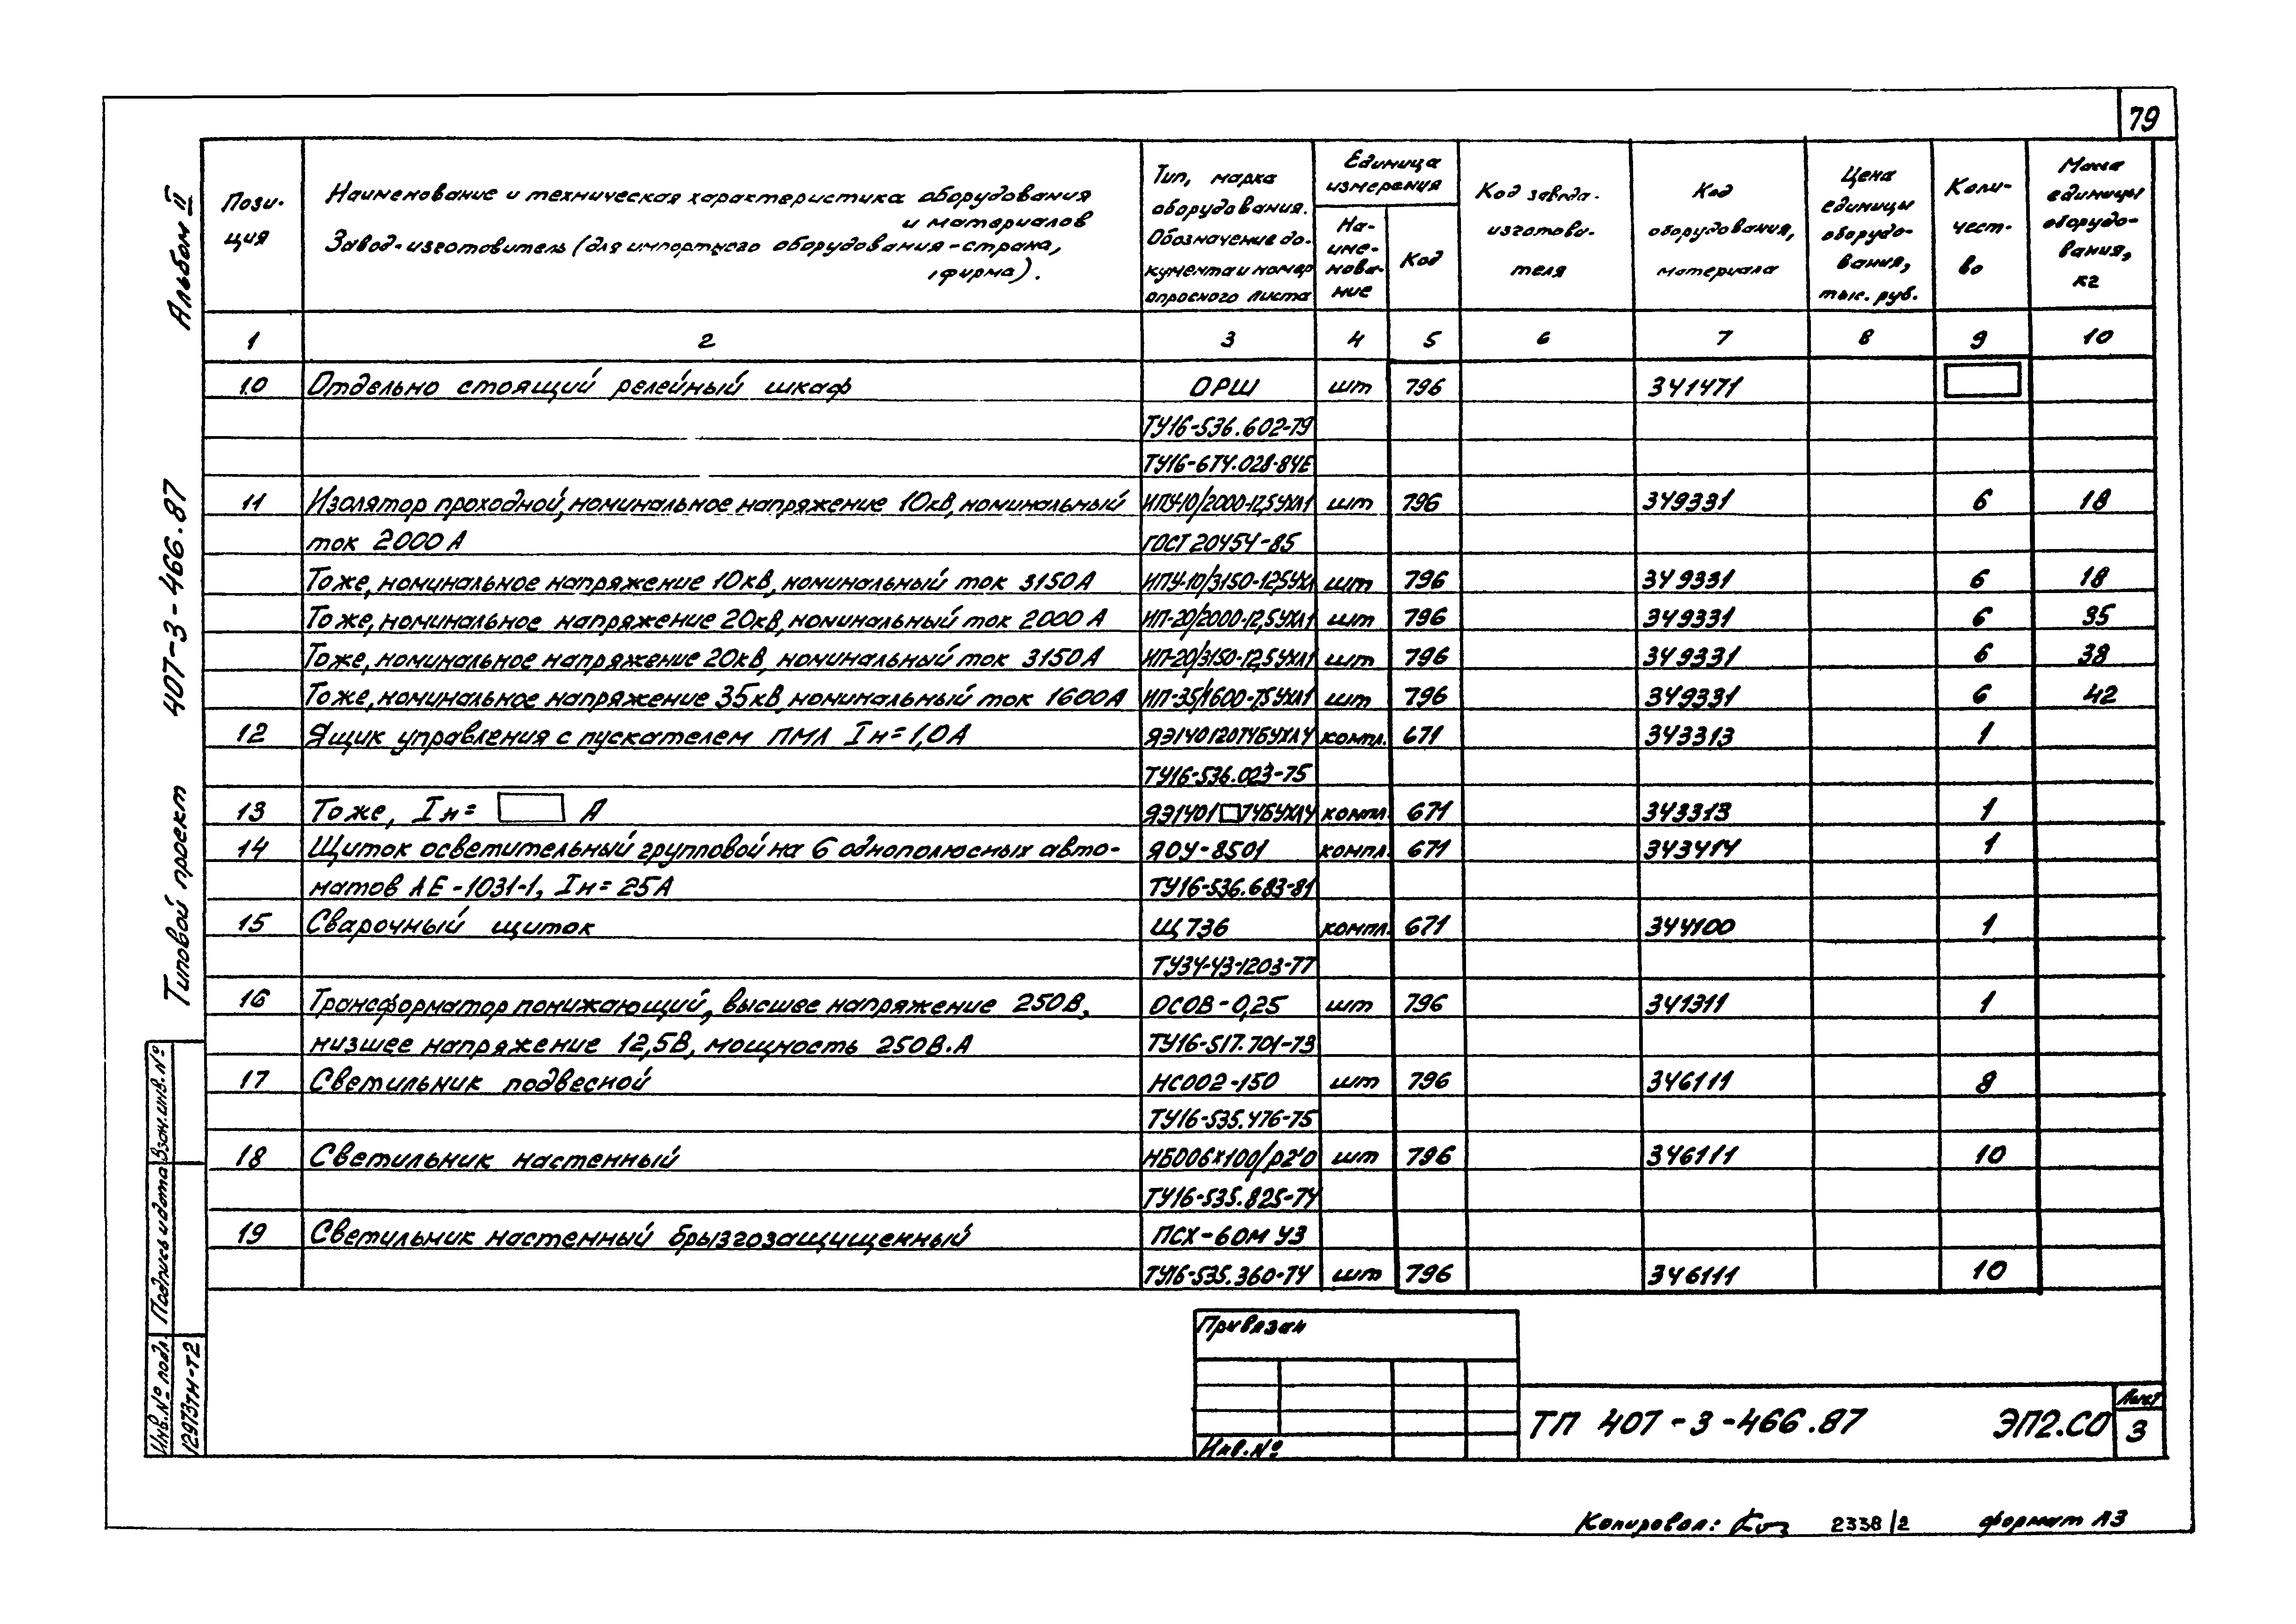 79
Альбом II
407-3-466.87
Типовой проект
Взам.инв.№
Подпись и дата
Инв.№ подл.
12973тм-т2
Пози-
ция
Наименование и техническая характеристика оборудования
и материалов
Завод-изготовитель (для импортного оборудования-страна,
фирма).
Тип, марка
оборудования.
Обозначение до-
кумента и номер
опросного листа
Единица
измерения
На-
име-
нова-
ние
Код
Код завода-
изготови-
теля
Код
оборудования,
материала
Цена
единицы
оборудо-
вания,
тыс. руб.
Коли-
чест-
во
Масса
единицы
оборудо-
вания,
кг
1 2 3 4 5 6 7 8 9 10
10 Отдельно стоящий релейный шкаф ОРШ шт 796 341471
ТУ16-536.602-79
ТУ16-674.028-84Е
11 Изолятор проходной, номинальное напряжение 10кв, номинальный ИПУ-10/2000-12,5УХЛ1 шт 796 349331 6 18
ток 2000А ГОСТ 20454-85
Тоже, номинальное напряжение 10кв, номинальный ток 3150А ИПУ-10/3150-12,5УХЛ шт 796 349331 6 18
Тоже, номинальное напряжение 20кв, номинальный ток 2000А ИП-20/2000-12,5УХЛ1 шт 796 349331 6 35
Тоже, номинальное напряжение 20кв, номинальный ток 3150А ИП-20/3150-12,5УХЛ1 шт 796 349331 6 38
Тоже, номинальное напряжение 35кв, номинальный ток 1600А ИП-35/1600-7,5УХЛ1 шт 796 349331 6 42
12 Ящик управления с пускателем ПМЛ Iн=1,0А ЯЭ14012074БУХЛ4 компл. 671 343313 1
ТУ16-536.023-75
13 Тоже, Iн= А ЯЭ1401 74БУХЛ4 компл. 671 343313 1
14 Щиток осветительный групповой на 6 однополюсных авто- ЯОУ-8501 компл. 671 343414 1
матов АЕ-1031-1, Iн=25А ТУ16-536.683-81
15 Сварочный щиток Щ736 компл. 671 344100 1
ТУ34-43-1203-77
16 Трансформатор понижающий, высшее напряжение 250В, ОСОВ-0,25 шт 796 341311 1
низшее напряжение 12,5В, мощность 250В.А ТУ16-517.701-73
17 Светильник подвесной НСО02-150 шт 796 346111 8
ТУ16-535.476-75
18 Светильник настенный НБО06х100/р2'0 шт 796 346111 10
ТУ16-535.825-74
19 Светильник настенный брызгозащищенный ПСХ-60М У3
ТУ16-535.360-74 шт 796 346111 10
Привязан
Инв.№
ТП 407-3-466.87 ЭП2.СО
Лист
3
Копировал: 2338/2 формат А3